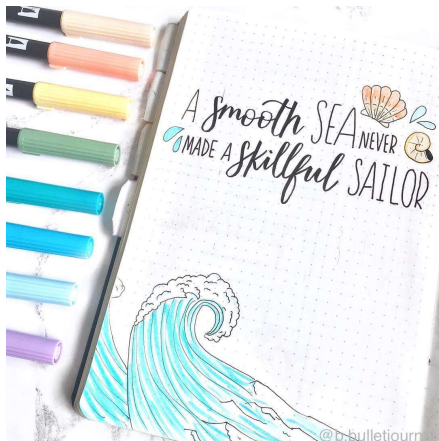 A smooth SEA NEVER
MADE A skillful SAILOR
@b.bulletjourn